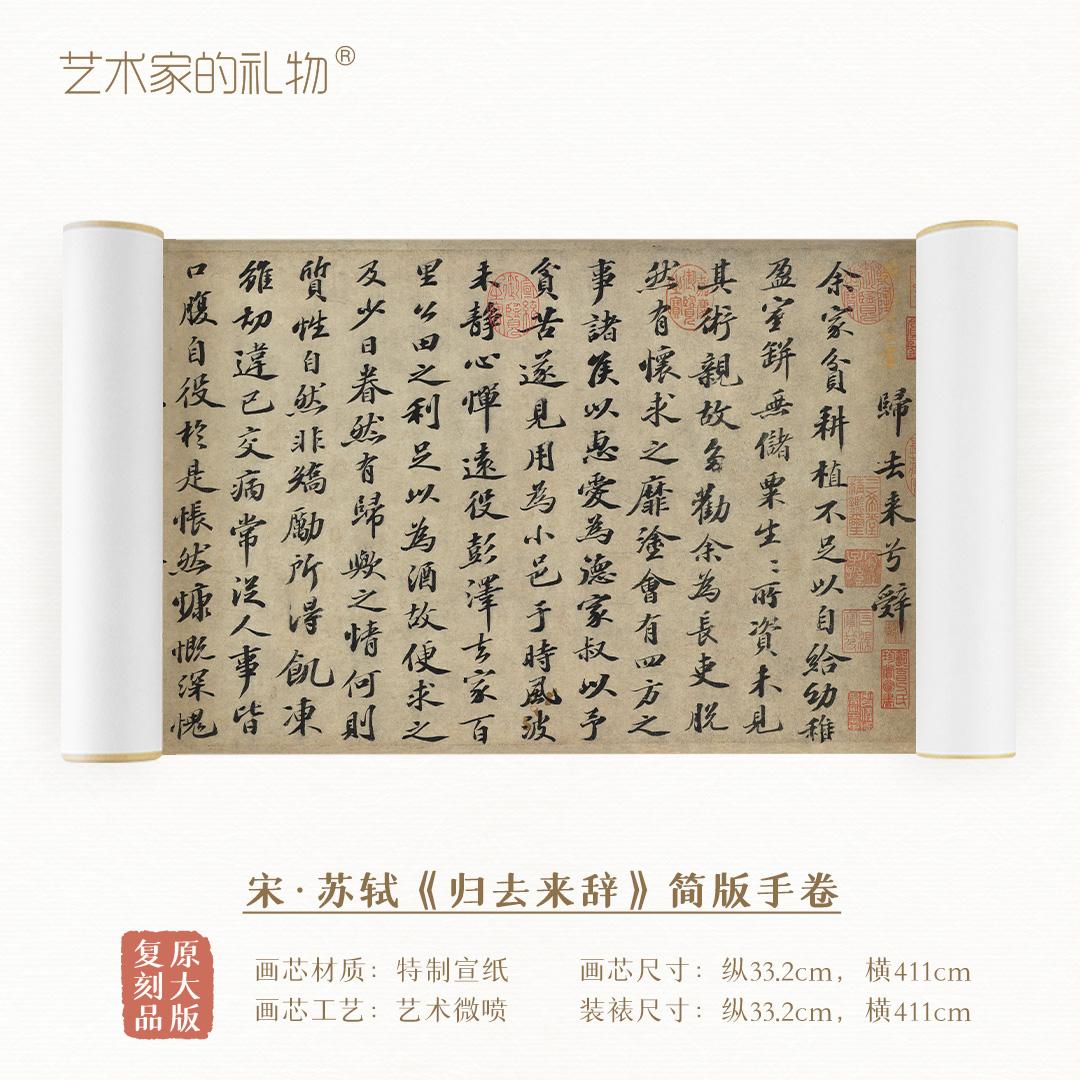 艺术家的礼物®
歸去来兮辤
余家貧耕植不足以自給幼稚
盈室缾無儲粟生〻所資未見
其術親故多勸余為長吏脱
然有懷求之靡塗會有四方之
事諸侯以惠愛為德家叔以予
貧苦遂見用為小邑于時風波
未靜心憚遠役彭澤去家百
里公田之利足以為酒故便求之
及少日眷然有歸歟之情何則
質性自然非矯勵所得飢凍
雖切違己交病常從人事皆
口腹自役於是悵然慷慨深愧
宋·苏轼《归去来辞》简版手卷
原大版
复刻品
画芯材质：特制宣纸
画芯尺寸：纵33.2cm，横411cm
画芯工艺：艺术微喷
装裱尺寸：纵33.2cm，横411cm